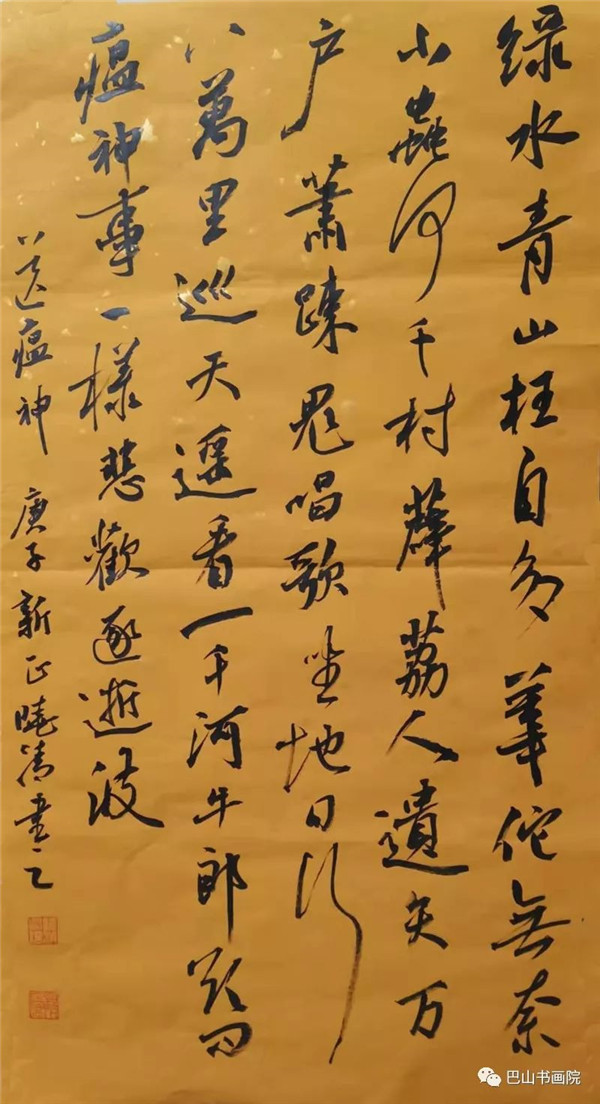 绿水青山枉自多華佗無奈
小蟲何千村薜荔人遺矢万
户蕭疎鬼唱歌坐地日行
八萬里巡天遥看一千河牛郎欲问
瘟神事一樣悲歡逐逝波
送瘟神 庚子新正曉清書之
巴山书画院